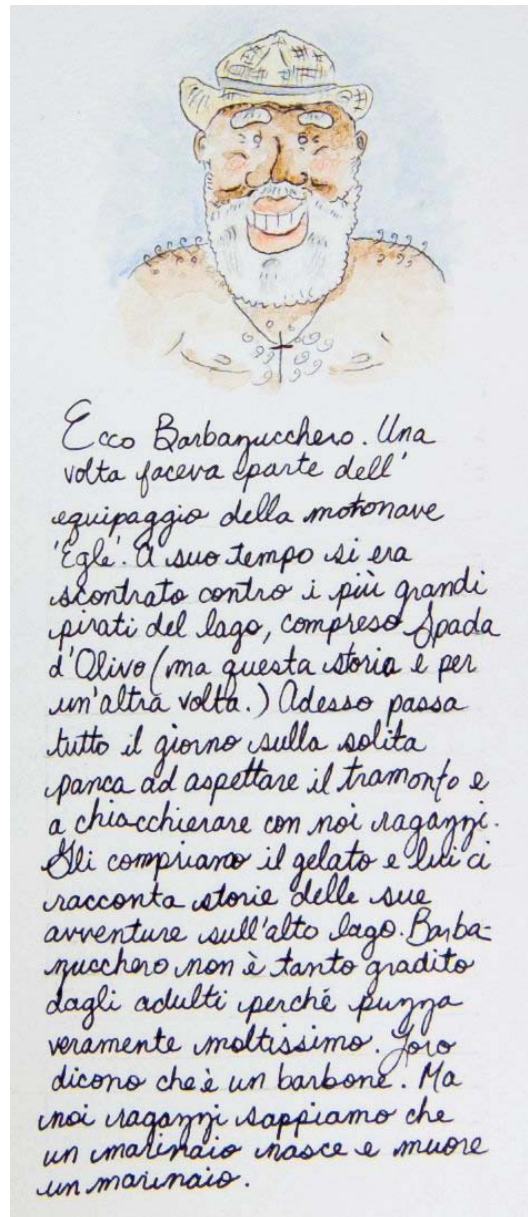 Ecco Barbazucchero. Una
volta faceva parte dell'
equipaggio della motonave
'Egle'. A suo tempo si era
scontrato contro i più grandi
pirati del lago, compreso Spada
d'Olivo (ma questa storia e per
un'altra volta.) Adesso passa
tutto il giorno sulla solita
panca ad aspettare il tramonto e
a chiacchierare con noi ragazzi.
Gli compriamo il gelato e lui ci
racconta storie delle sue
avventure sull'alto lago. Barba-
zucchero non è tanto gradito
dagli adulti perché puzza
veramente moltissimo. Loro
dicono che è un barbone. Ma
noi ragazzi sappiamo che
un marinaio nasce e muore
un marinaio.